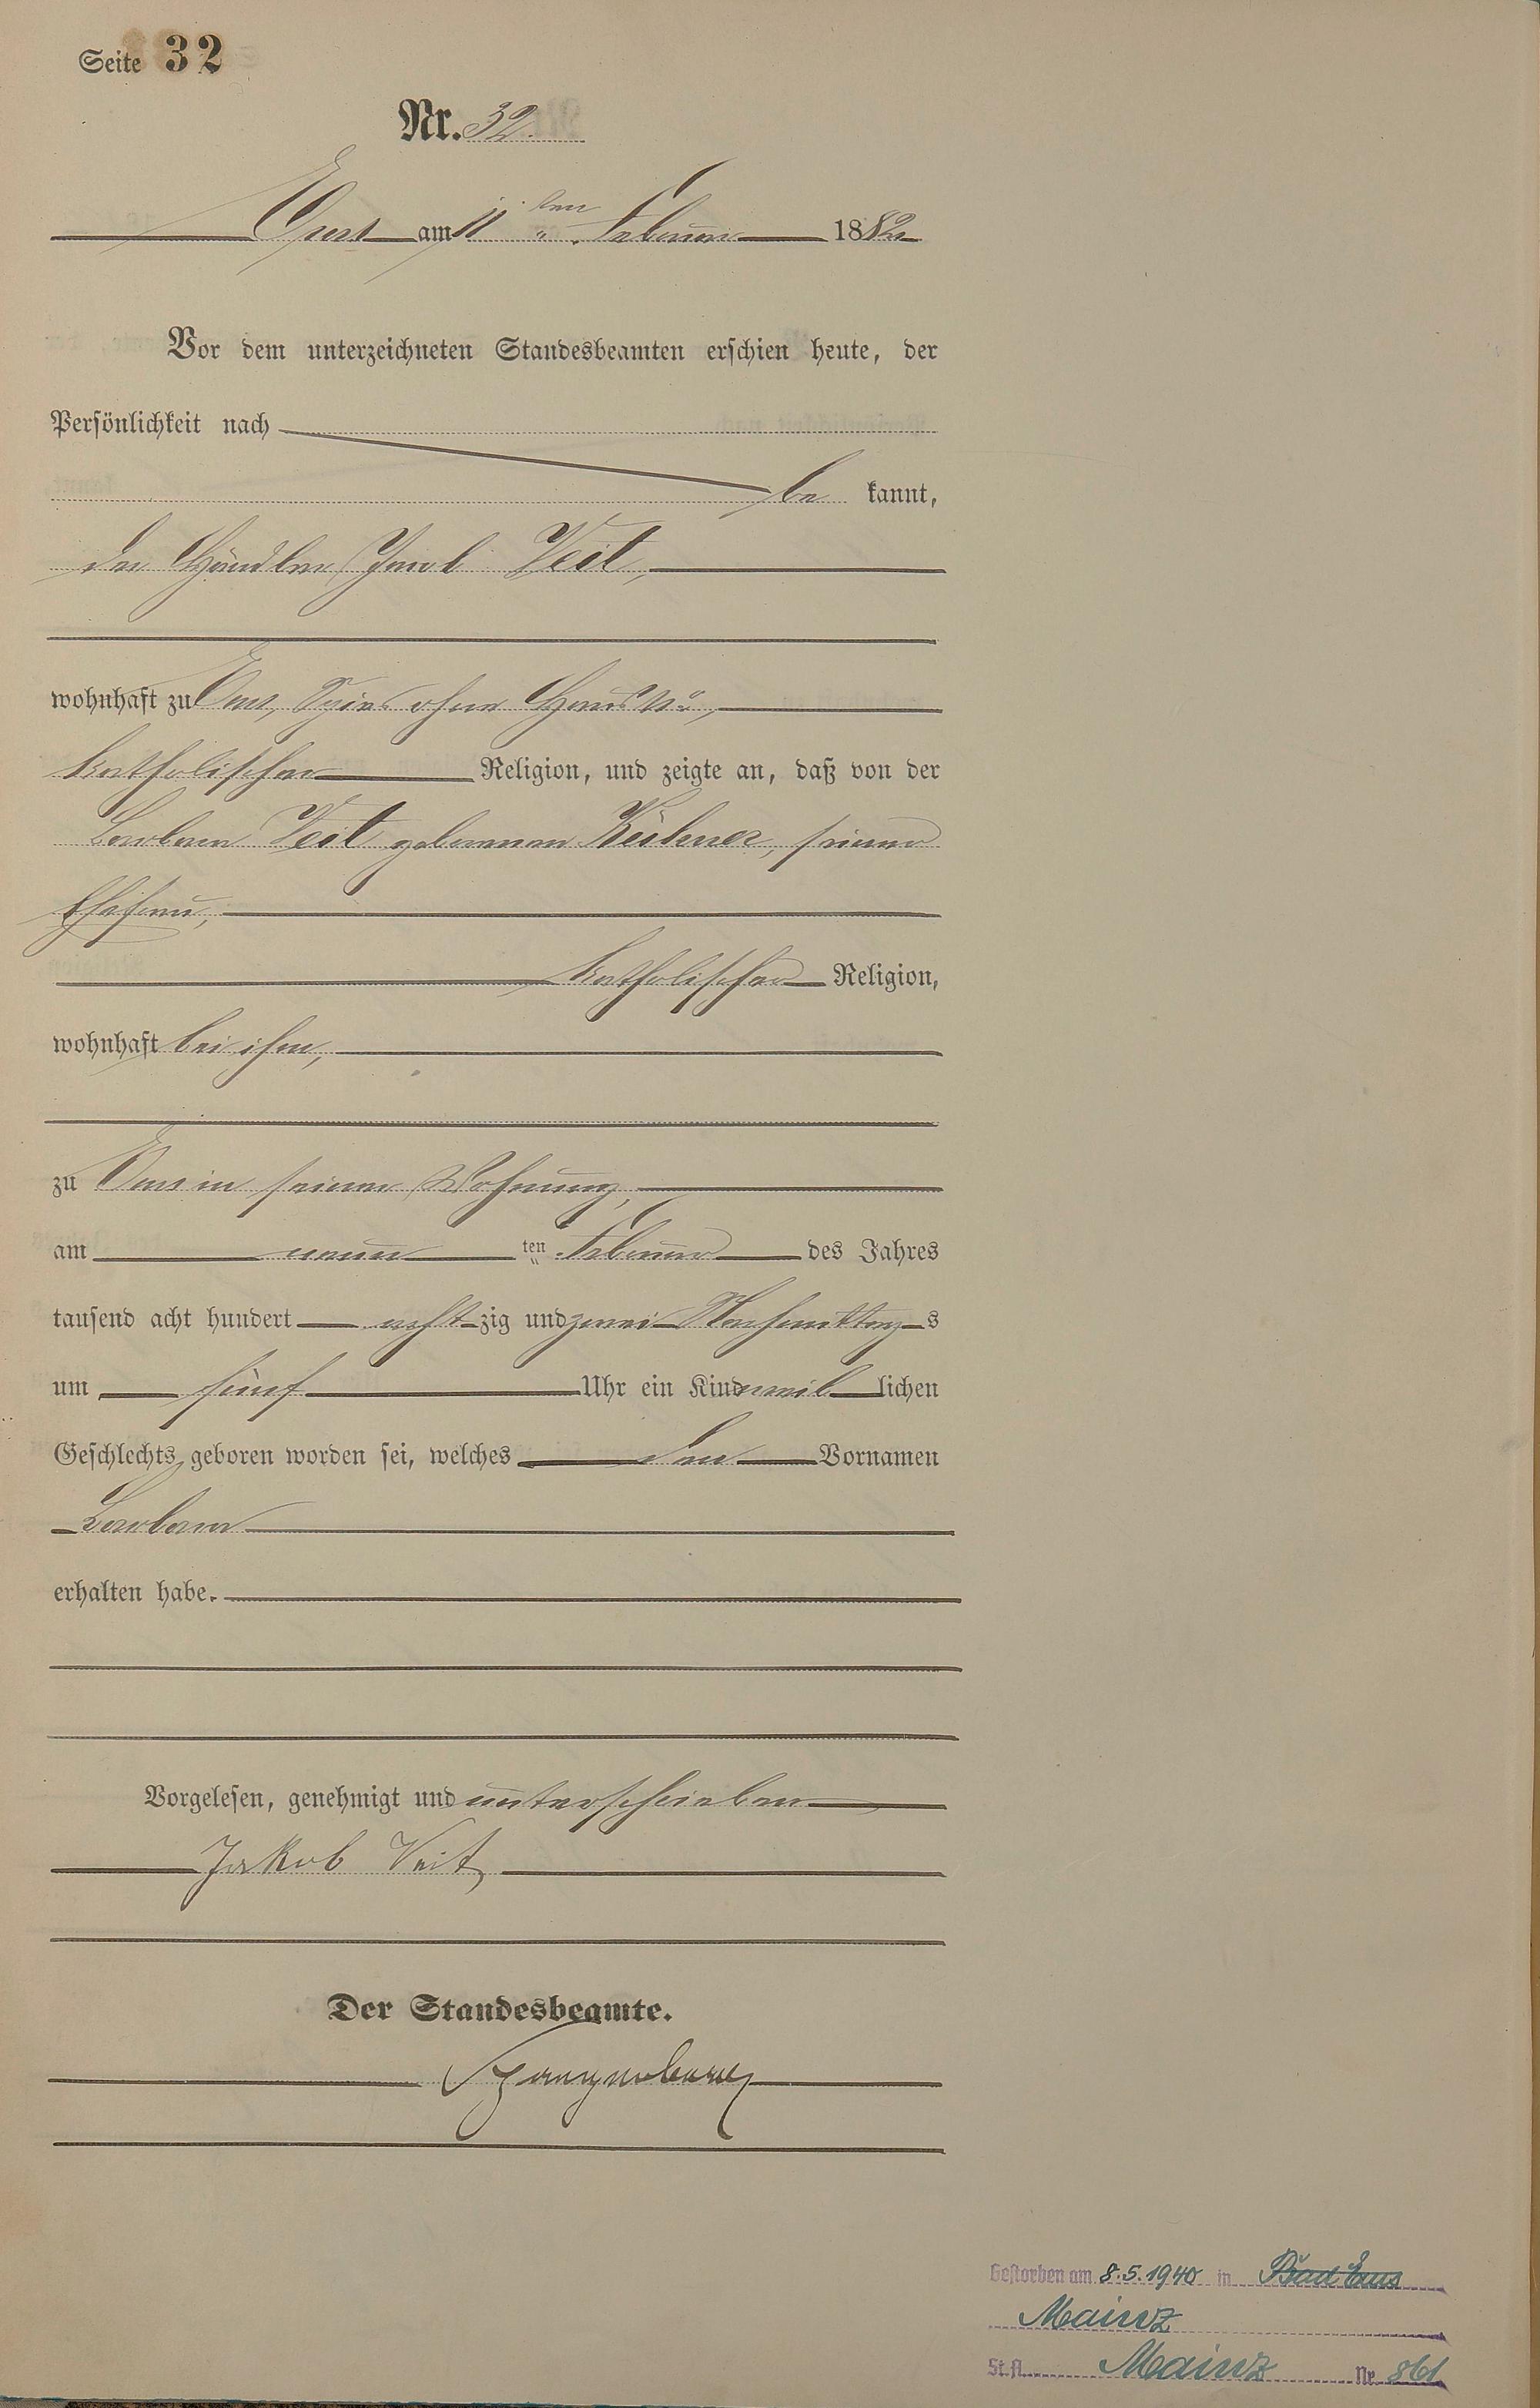 Seite 32
Nr. 32.
Ems am 11ten Februar 1882
Vor dem unterzeichneten Standesbeamten erschien heute, der
Persönlichkeit nach
be kannt,
der Händler Jacob Veit,
wohnhaft zu Ems, Spies ohne Haus No,
katholischer Religion, und zeigte an, daß von der
Barbara Veit geborenen Kübner, seiner
Ehefrau,
katholischer Religion,
wohnhaft bei ihm,
zu Ems in seiner Wohnung,
am neun ten Februar des Jahres
tausend acht hundert acht zig und zwei Nachmittag s
um fünf Uhr ein Kind weib lichen
Geschlechts geboren worden sei, welches den Vornamen
Barbara
erhalten habe.
Vorgelesen, genehmigt und unterschrieben
Jakob Veit
Der Standesbeamte.
Spangenberg
Gestorben am 8.5.1940 in Bad Ems
Mainz
St. A. Mainz Nr. 861